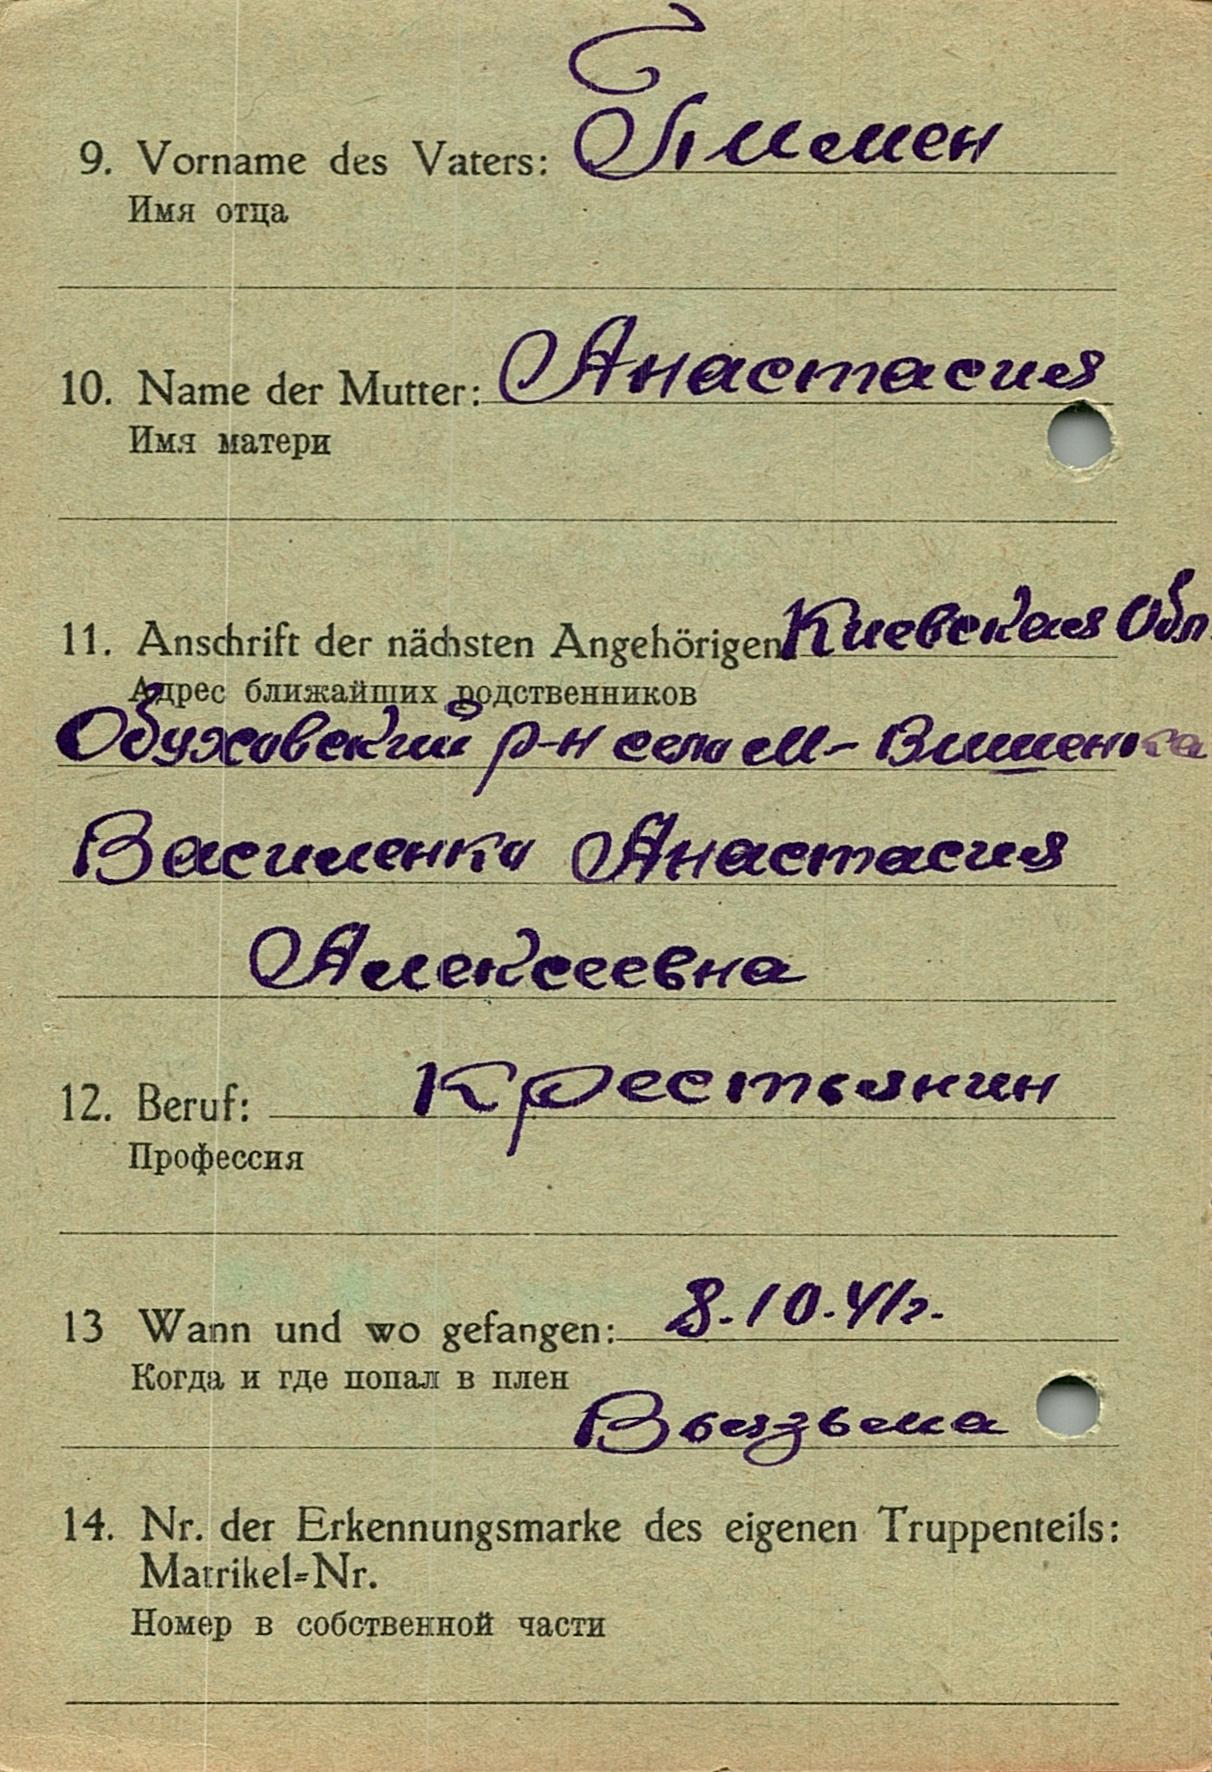 9. Vorname des Vaters: Пимен
Имя отца
10. Name der Mutter: Анастасия
Имя матери
11. Anschrift der nächsten Angehörigen Киевская Обл
Адрес ближайших родственников
Обуховский р-н село М- Вишенка
Василенко Анастасия
Алексеевна
12. Beruf: Крестьянин
Профессия
13 Wann und wo gefangen: 8.10.41г.
Когда и где попал в плен
Вьязьма
14. Nr. der Erkennungsmarke des eigenen Truppenteils:
Matrikel=Nr.
Номер в собственной части